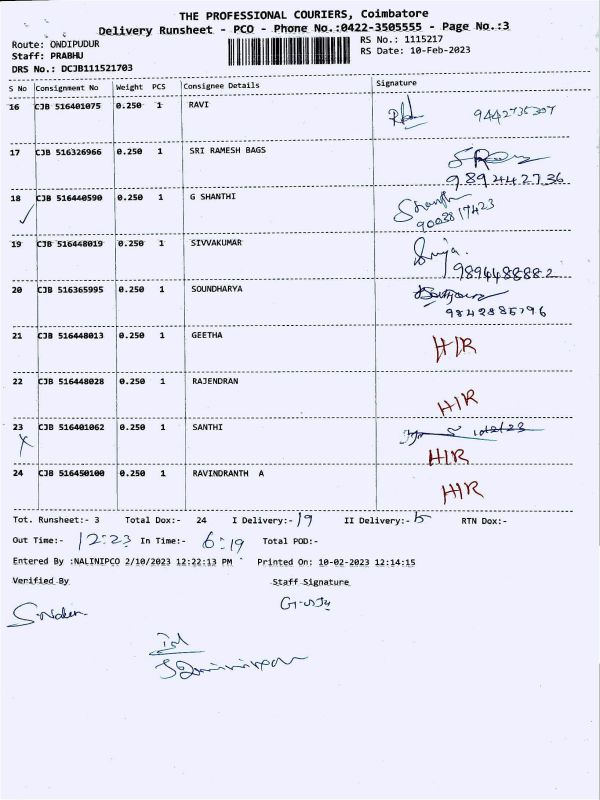 THE PROFESSIONAL COURIERS, Coimbatore
Delivery Runsheet - PCO - Phone No.:0422-3505555 - Page No.:3
Route: ONDIPUDUR
RS No.: 1115217
Staff: PRABHU
RS Date: 10-Feb-2023
DRS No.: DCJB111521703
S No Consignment No Weight PCS Consignee Details Signature
16 CJB 516401075 0.250 1 RAVI 9442735307
17 CJB 516326966 0.250 1 SRI RAMESH BAGS
9894442736
18 CJB 516440590 0.250 1 G SHANTHI Shanthi
9003817423
19 CJB 516448019 0.250 1 SIVVAKUMAR
9894488882
20 CJB 516365995 0.250 1 SOUNDHARYA
9842885796
21 CJB 516448013 0.250 1 GEETHA HIR
22 CJB 516448028 0.250 1 RAJENDRAN HIR
23 CJB 516401062 0.250 1 SANTHI
HIR
24 CJB 516450100 0.250 1 RAVINDRANTH A HIR
Tot. Runsheet:- 3 Total Dox:- 24 I Delivery:- 19 II Delivery:- RTN Dox:-
Out Time:- 12:23 In Time:- 6:19 Total POD:-
Entered By :NALINIPCO 2/10/2023 12:22:13 PM Printed On: 10-02-2023 12:14:15
Verified By Staff Signature